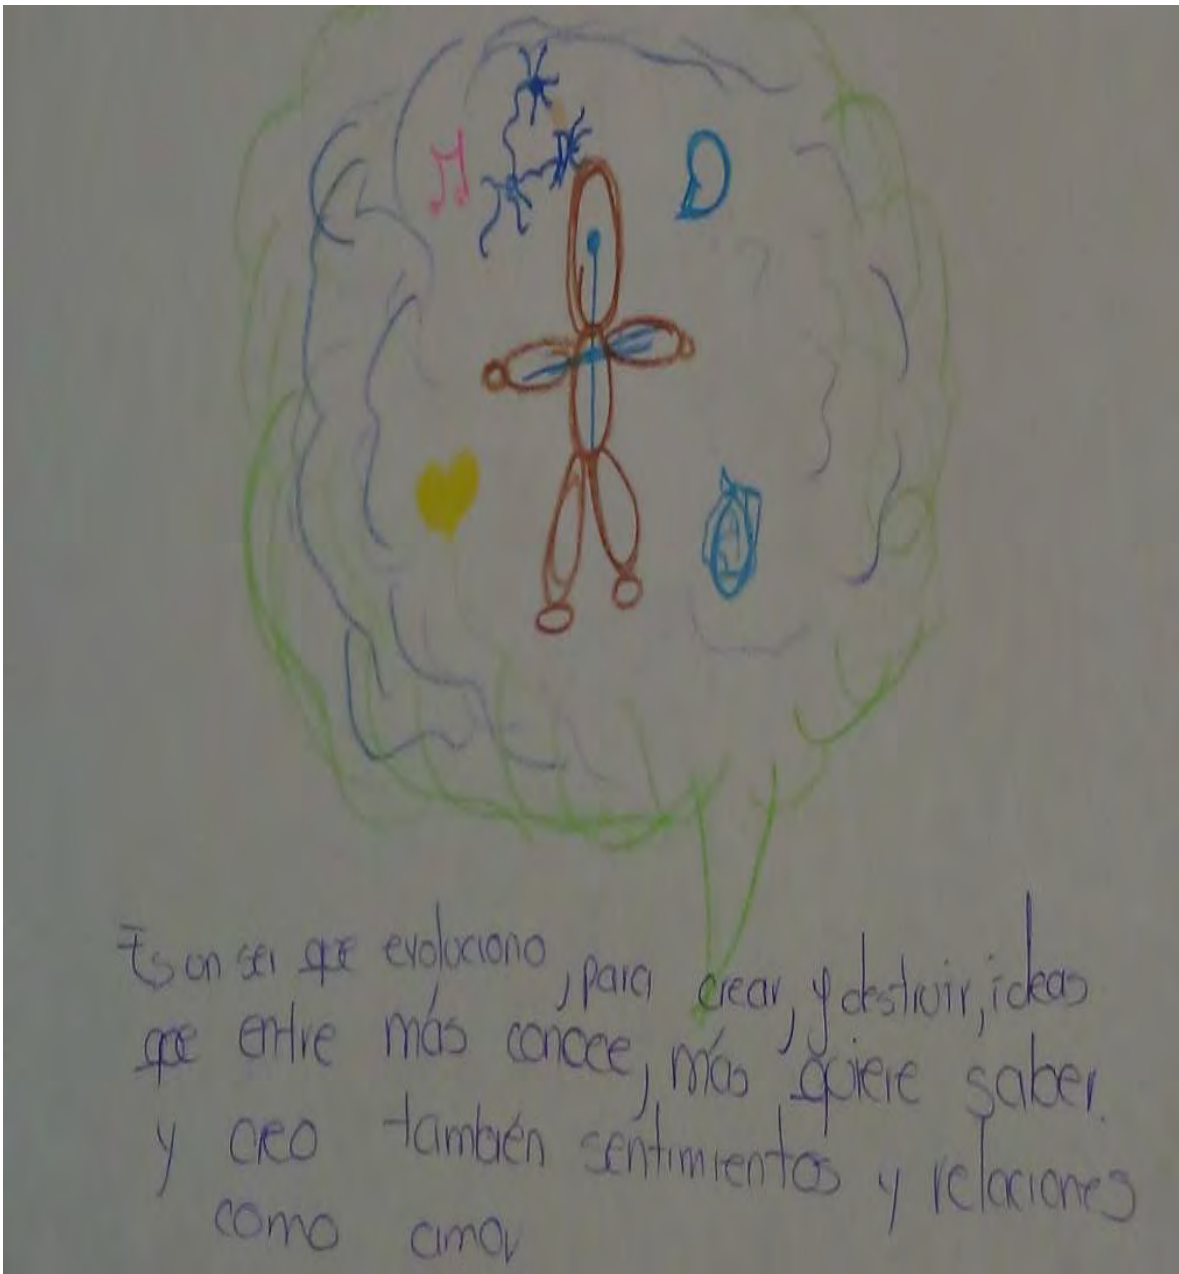 Es un ser que evoluciono, para crear, y destruir, ideas
que entre más conoce, más quiere saber.
y creo también sentimientos y relaciones
como amor